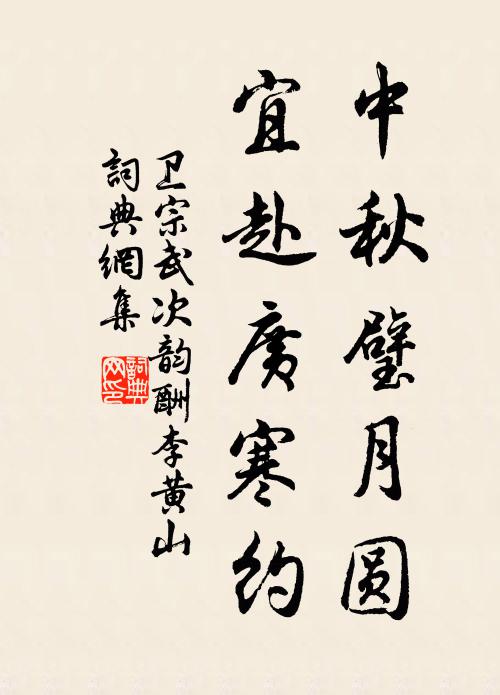 中秋璧月圆
宜赴广寒约
卫宗武次韵酬李黄山
詞典網集
詞典网印